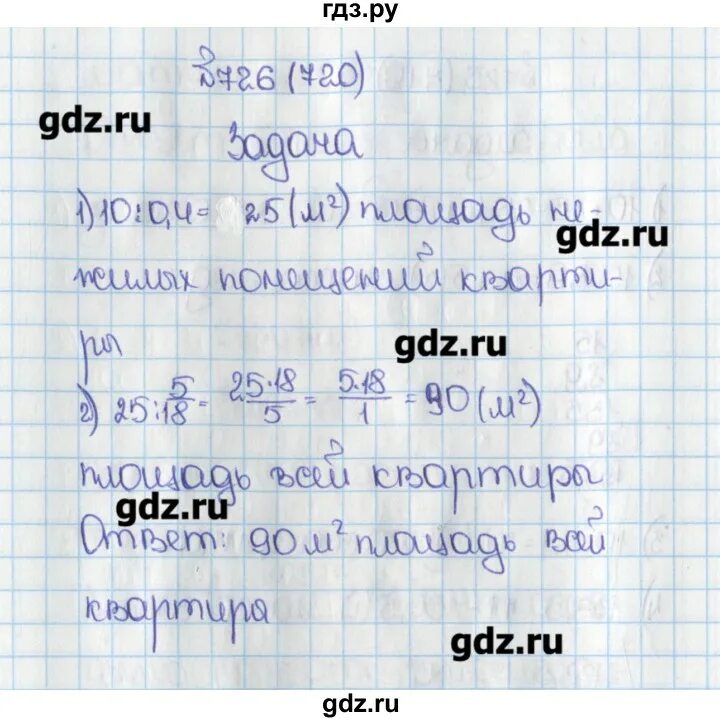 гдз.ру
№726 (720)
gdz.ru
Задача
1) 10:0,4= 25 (м²) площадь не-
gdz.ru
жилых помещений кварти-
ры
gdz.ru
2) 25:5/18 = 25·18/5 = 5·18/1 = 90 (м²)
площадь всей квартиры
gdz.ru
Ответ: 90 м² площадь всей
квартира
gdz.ru
gdz.ru